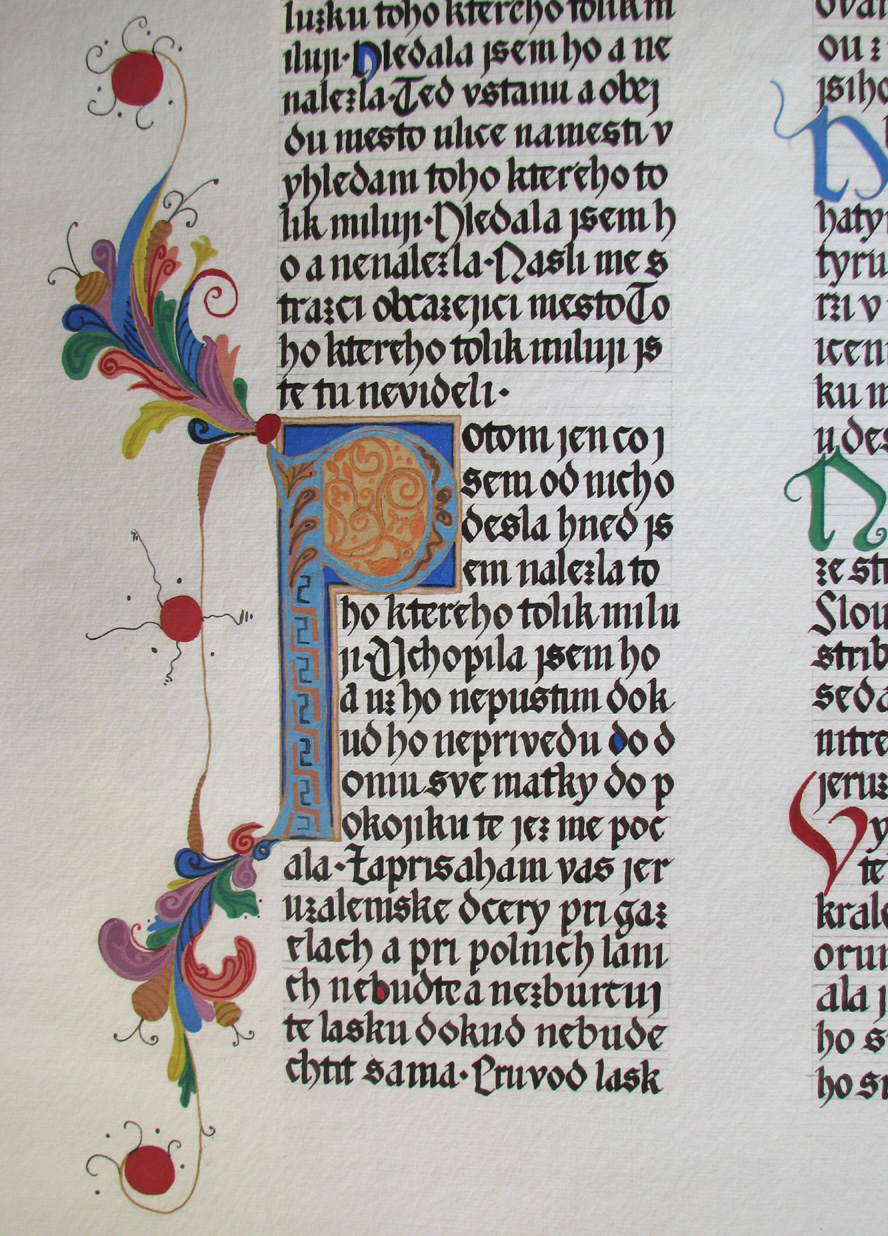 luzku toho ktereho tolik m
iluji·Hledala jsem ho a ne
nalezla·Ted vstanu a obej
du mesto ulice namesti v
yhledam toho ktereho to
lik miluji·Hledala jsem h
o a nenalezla·Nasli me s
trazci obcazejici mesto To
ho ktereho tolik miluji js
te tu nevideli·
Potom jen co j
sem od nich o
desla hned js
em nalezla to
ho ktereho tolik milu
ji·Uchopila jsem ho
a uz ho nepustim dok
ud ho neprivedu do d
omu sve matky do p
okojiku te jez me poc
ala·Zaprisaham vas jer
uzalemske dcery pri gaz
elach a pri polnich lani
ch nebudte a nezburcuj
te lasku dokud nebude
chtit sama·Pruvod lask
ou z
jsi ho
haty
tyru
rzi v
iceni
ku m
u des
ze st
Slou
strib
seda
nitre
jeruz
Vy
te
krale
orun
ala j
ho s
ho sn